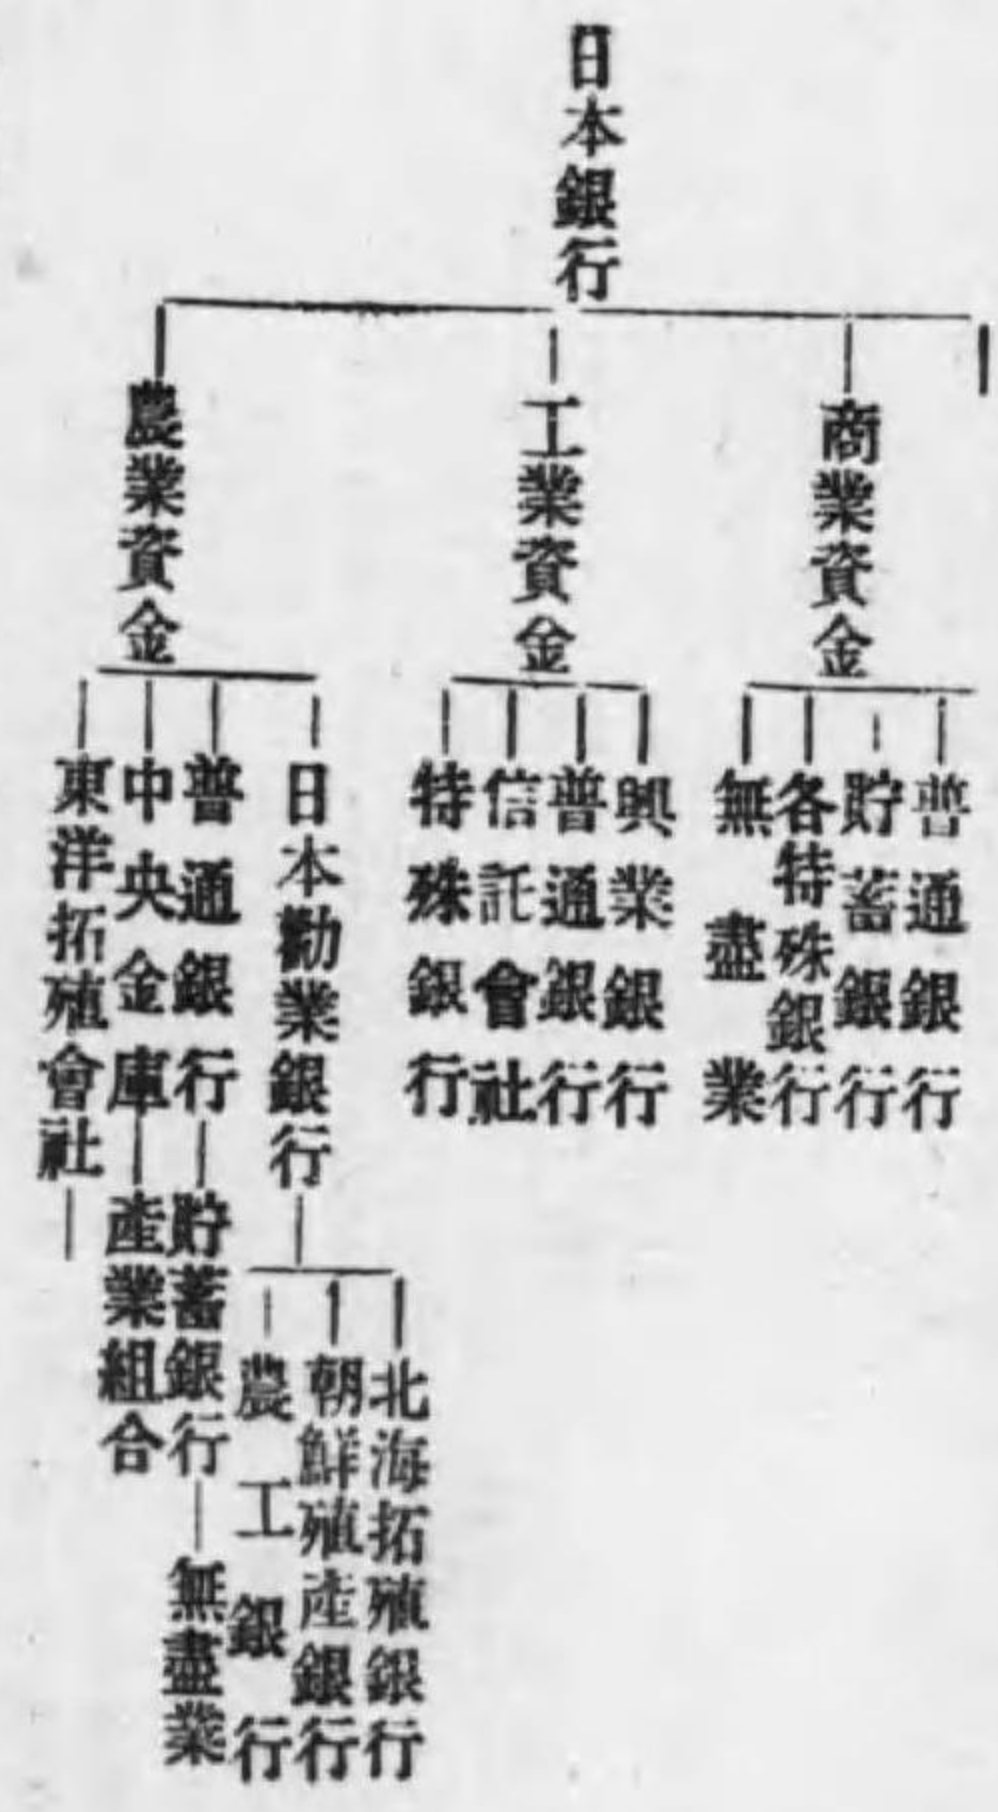 日本銀行
商業資金
普通銀行
貯蓄銀行
各特殊銀行
無盡業
工業資金
興業銀行
普通銀行
信託會社
特殊銀行
農業資金
日本勸業銀行
北海拓殖銀行
朝鮮殖産銀行
農工銀行
普通銀行
貯蓄銀行
無盡業
中央金庫
産業組合
東洋拓殖會社